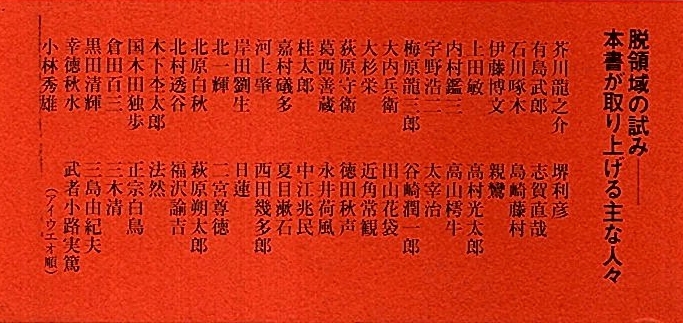 脱領域の試み——
本書が取り上げる主な人々
芥川龍之介
有島武郎
石川啄木
伊藤博文
上田敏
内村鑑三
宇野浩二
梅原龍三郎
大内兵衛
大杉栄
荻原守衛
葛西善蔵
桂太郎
嘉村礒多
河上肇
岸田劉生
北一輝
北原白秋
北村透谷
木下杢太郎
国木田独歩
倉田百三
黒田清輝
幸徳秋水
小林秀雄
堺利彦
志賀直哉
島崎藤村
親鸞
高村光太郎
高山樗牛
太宰治
谷崎潤一郎
田山花袋
近角常観
徳田秋声
永井荷風
中江兆民
夏目漱石
西田幾多郎
日蓮
二宮尊徳
萩原朔太郎
福沢諭吉
法然
正宗白鳥
三木清
三島由紀夫
武者小路実篤
(アイウエオ順)